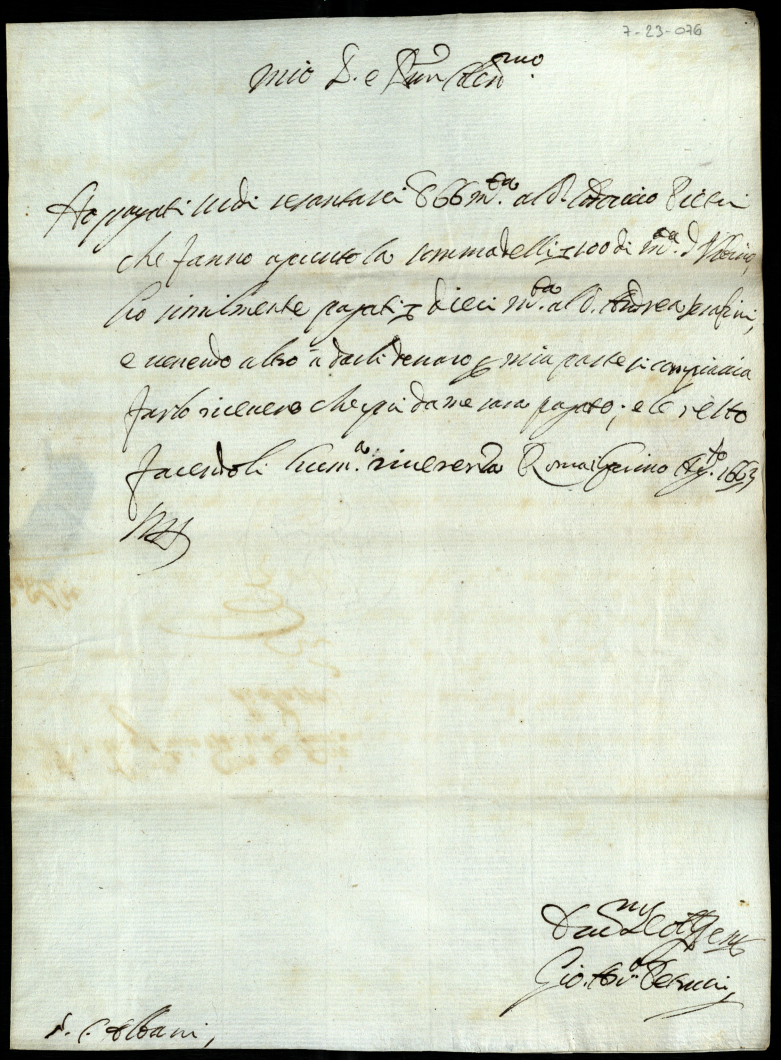 7-23-076
mio S.r e P̃ron
Ho pagati scudi sesantasei 66 m.ta al S.
che fanno apunto la somma delli 100 di m.ta d'Urbino,
ho similmente pagati dieci m.ta al S. Andrea Serafini,
e venendo altro à darli denaro p mia parte si compiacia
farlo ricevere che qui da me sara pagato; e le resto
facendoli hum.a riverenza Roma primo Ag.to 1663
VS
Gio. Petrucci
S. C. Albani,